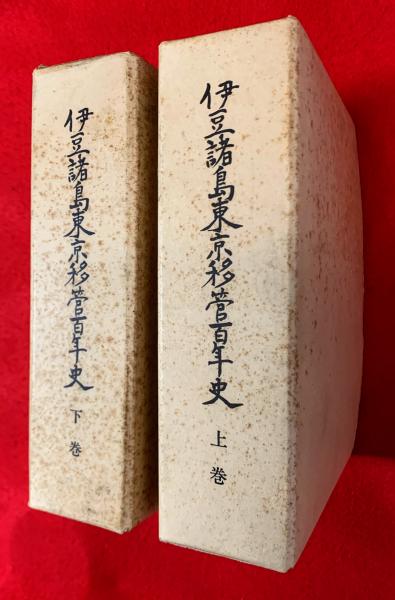 伊豆諸島東京移管百年史
上巻
伊豆諸島東京移管百年史
下巻